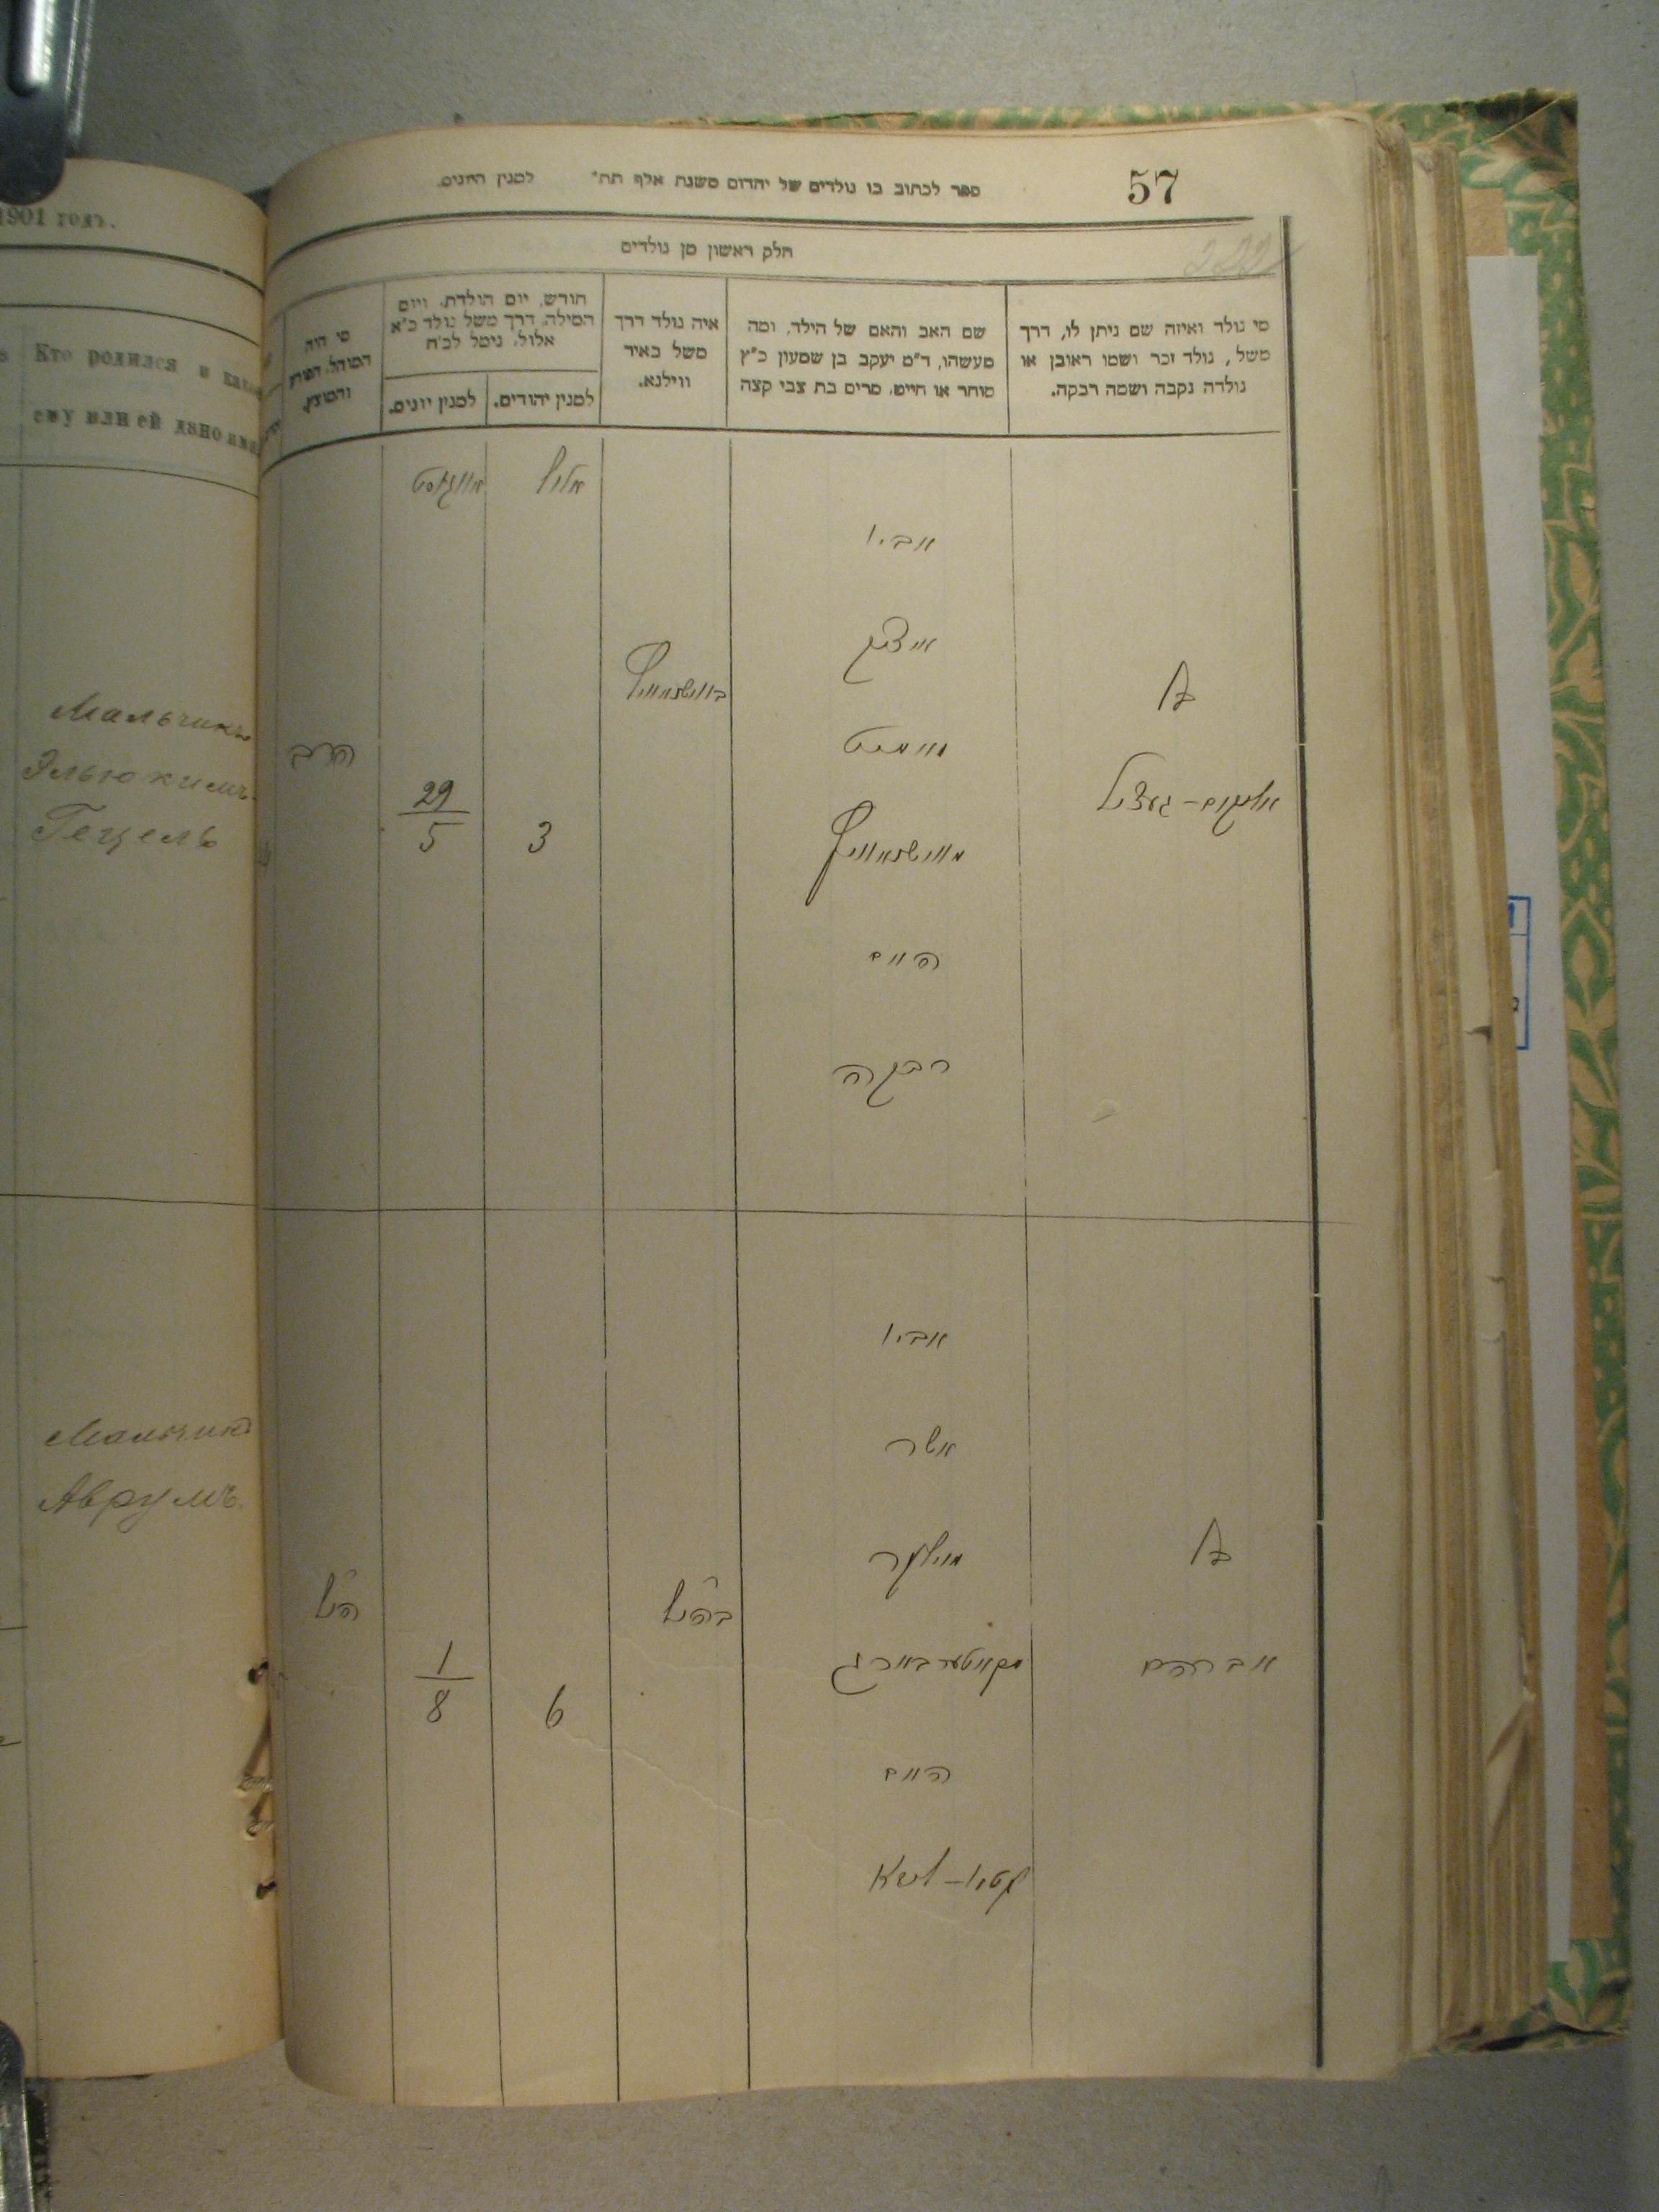 1901 годъ.
Кто родился и како
ему или ей дано имя
Мальчикъ
Эльюкимъ
Гецель
Мальчикъ
Аврумъ.
57
ספר לכתוב בו נולדים של יהדום משנת אלף תת״ למנין היונים.
חלק ראשון מן נולדים
מי נולד ואיזה שם ניתן לו, דרך
משל, נולד זכר ושמו ראובן או
נולדה נקבה ושמה רבקה.
שם האב והאם של הילד, ומה
מעשהו, ד״מ יעקב בן שמעון כ״ץ
סוחר או חייט, מרים בת צבי קצה
איה נולד דרך
משל באיד
ווילנא.
חודש, יום הולדת, ויום
המילה, דרך משל נולד כ״א
אלול, נימל לכ״ח
למנין יהודים.
למנין יונים.
מי היה
המוהל, הפורע
והמוצץ.
אלול
אויגוסט
אביו
איציק
ז
אליקים - געציל
האם
רבקה
3
29
5
הרב
אביו
אשר
ז
אברהם
האם
בהנ״ל
6
1
8
הנ״ל